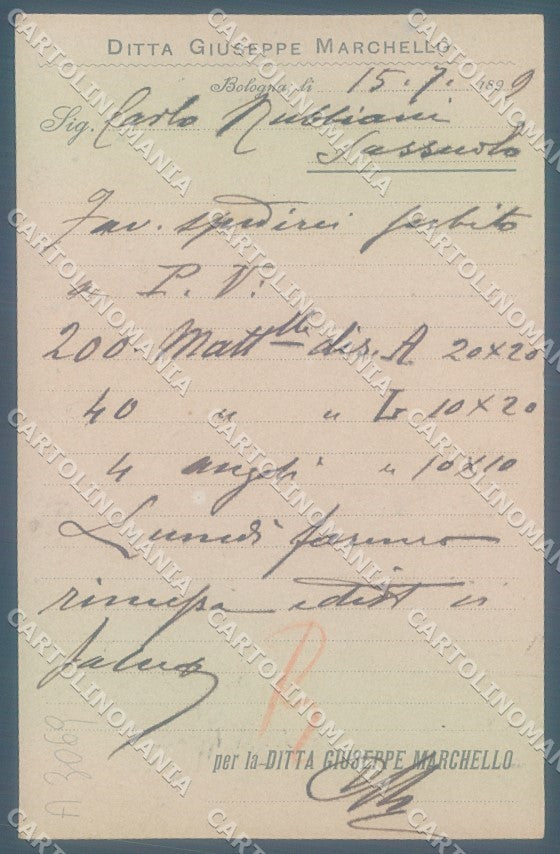 DITTA GIUSEPPE MARCHELLO
Bologna, li 15.7. 1899
Sig. Carlo Rubbiani
Sassuolo
Fav. spedirci subito
a P. V.
200 Matt.lle dis. A 20x20
40 " " L 10x20
4 angoli " 10x10
Lunedì faremo
rimessa e dist vi
per la DITTA GIUSEPPE MARCHELLO
A 3069
CARTOLINOMANIA